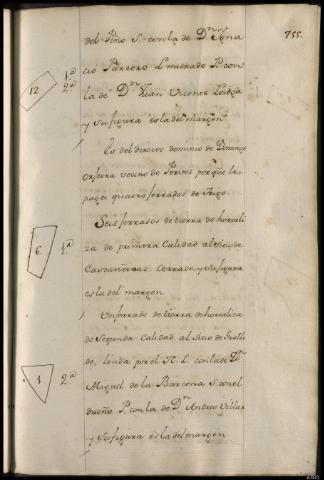 755.
del Peño S. con la de Dn. Igna
cio Parcero L. murado P. con
la de Dn. Juan Vicente
y su figura es la del margen
12 1ª 2ª
Es del directo dominio de Domingo
vecino de porque le
paga quatro ferrados de Trigo
Seis ferrados de tierra de hortali
za de primera Calidad al sitio de
Castañeiras Cerrada y su figura
es la del margen
6 1ª
Un ferrado de tierra de hortaliza
de Segunda Calidad al sitio de
de, linda por el N. L. con la de Dn.
Miguel de la Barcena S. con el
dueño P. con la de Dn. Andres Villar
y su figura es la del margen
1 2ª